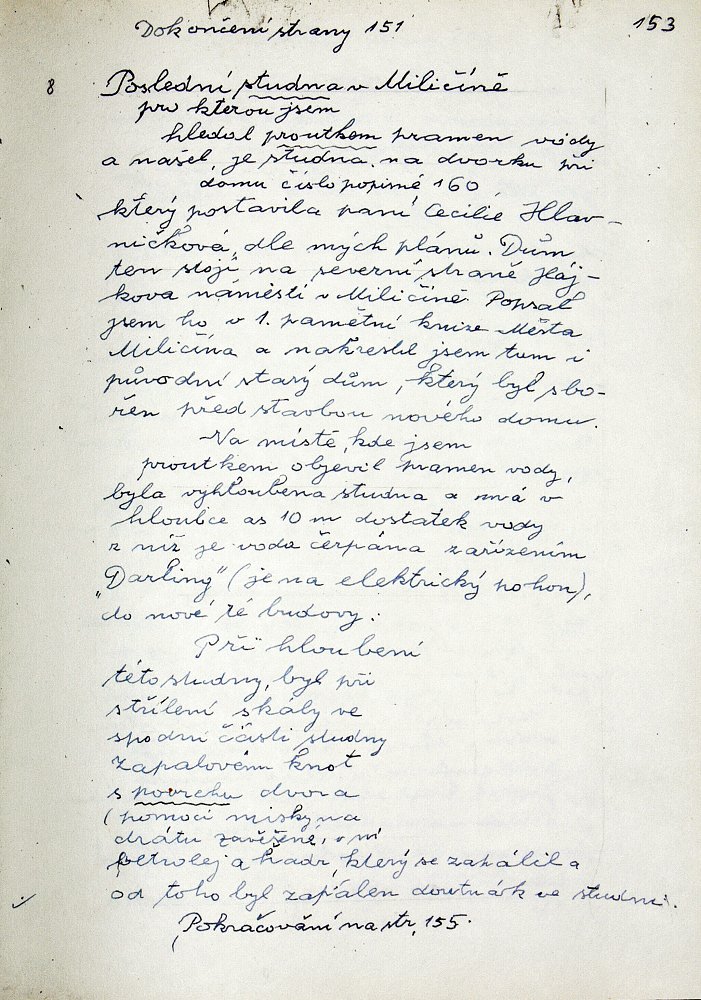 Dokončení strany 151
153
8 Poslední studna v Miličíně
pro kterou jsem
hledal proutkem pramen vody
a našel, je studna, na dvorku při
domu číslo popisné 160,
který postavila paní Cecilie Hlav-
ničková, dle mých plánů. Dům
ten stojí na severní straně Háj-
kova náměstí v Miličíně. Popsal
jsem ho v 1. pamětní knize Města
Miličína a nakreslil jsem tam i
původní starý dům, který byl sbo-
řen před stavbou nového domu.
Na místě, kde jsem
proutkem objevil pramen vody,
byla vyhloubena studna a má v
hloubce as 10 m dostatek vody
z níž je voda čerpána zařízením
„Darling" (je na elektrický pohon),
do nové té budovy.
Při hloubení
této studny, byl při
střílení skály ve
spodní části studny
zapalovém knot
s povrchu dvora
(pomocí misky na
drátu zavěšené, v ní
petrolej a hadr, který se zahálil a
od toho byl zapálen doutnák ve studni.
(Pokračování na str. 155.